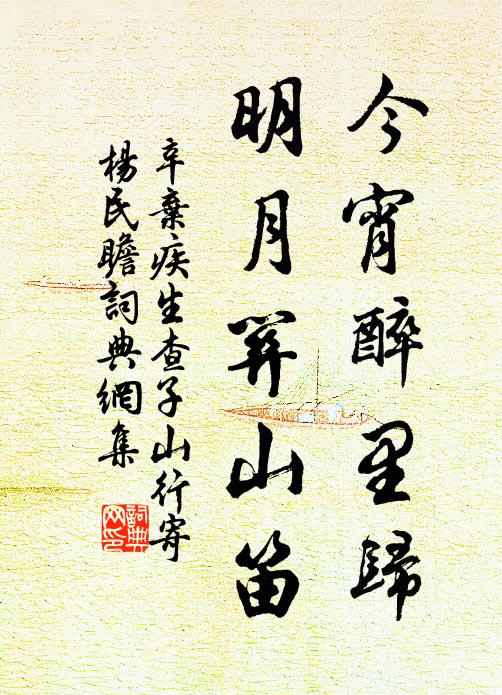 今宵醉里歸
明月関山笛
辛棄疾生查子山行寄
楊民瞻詞典網集
詞典
网印